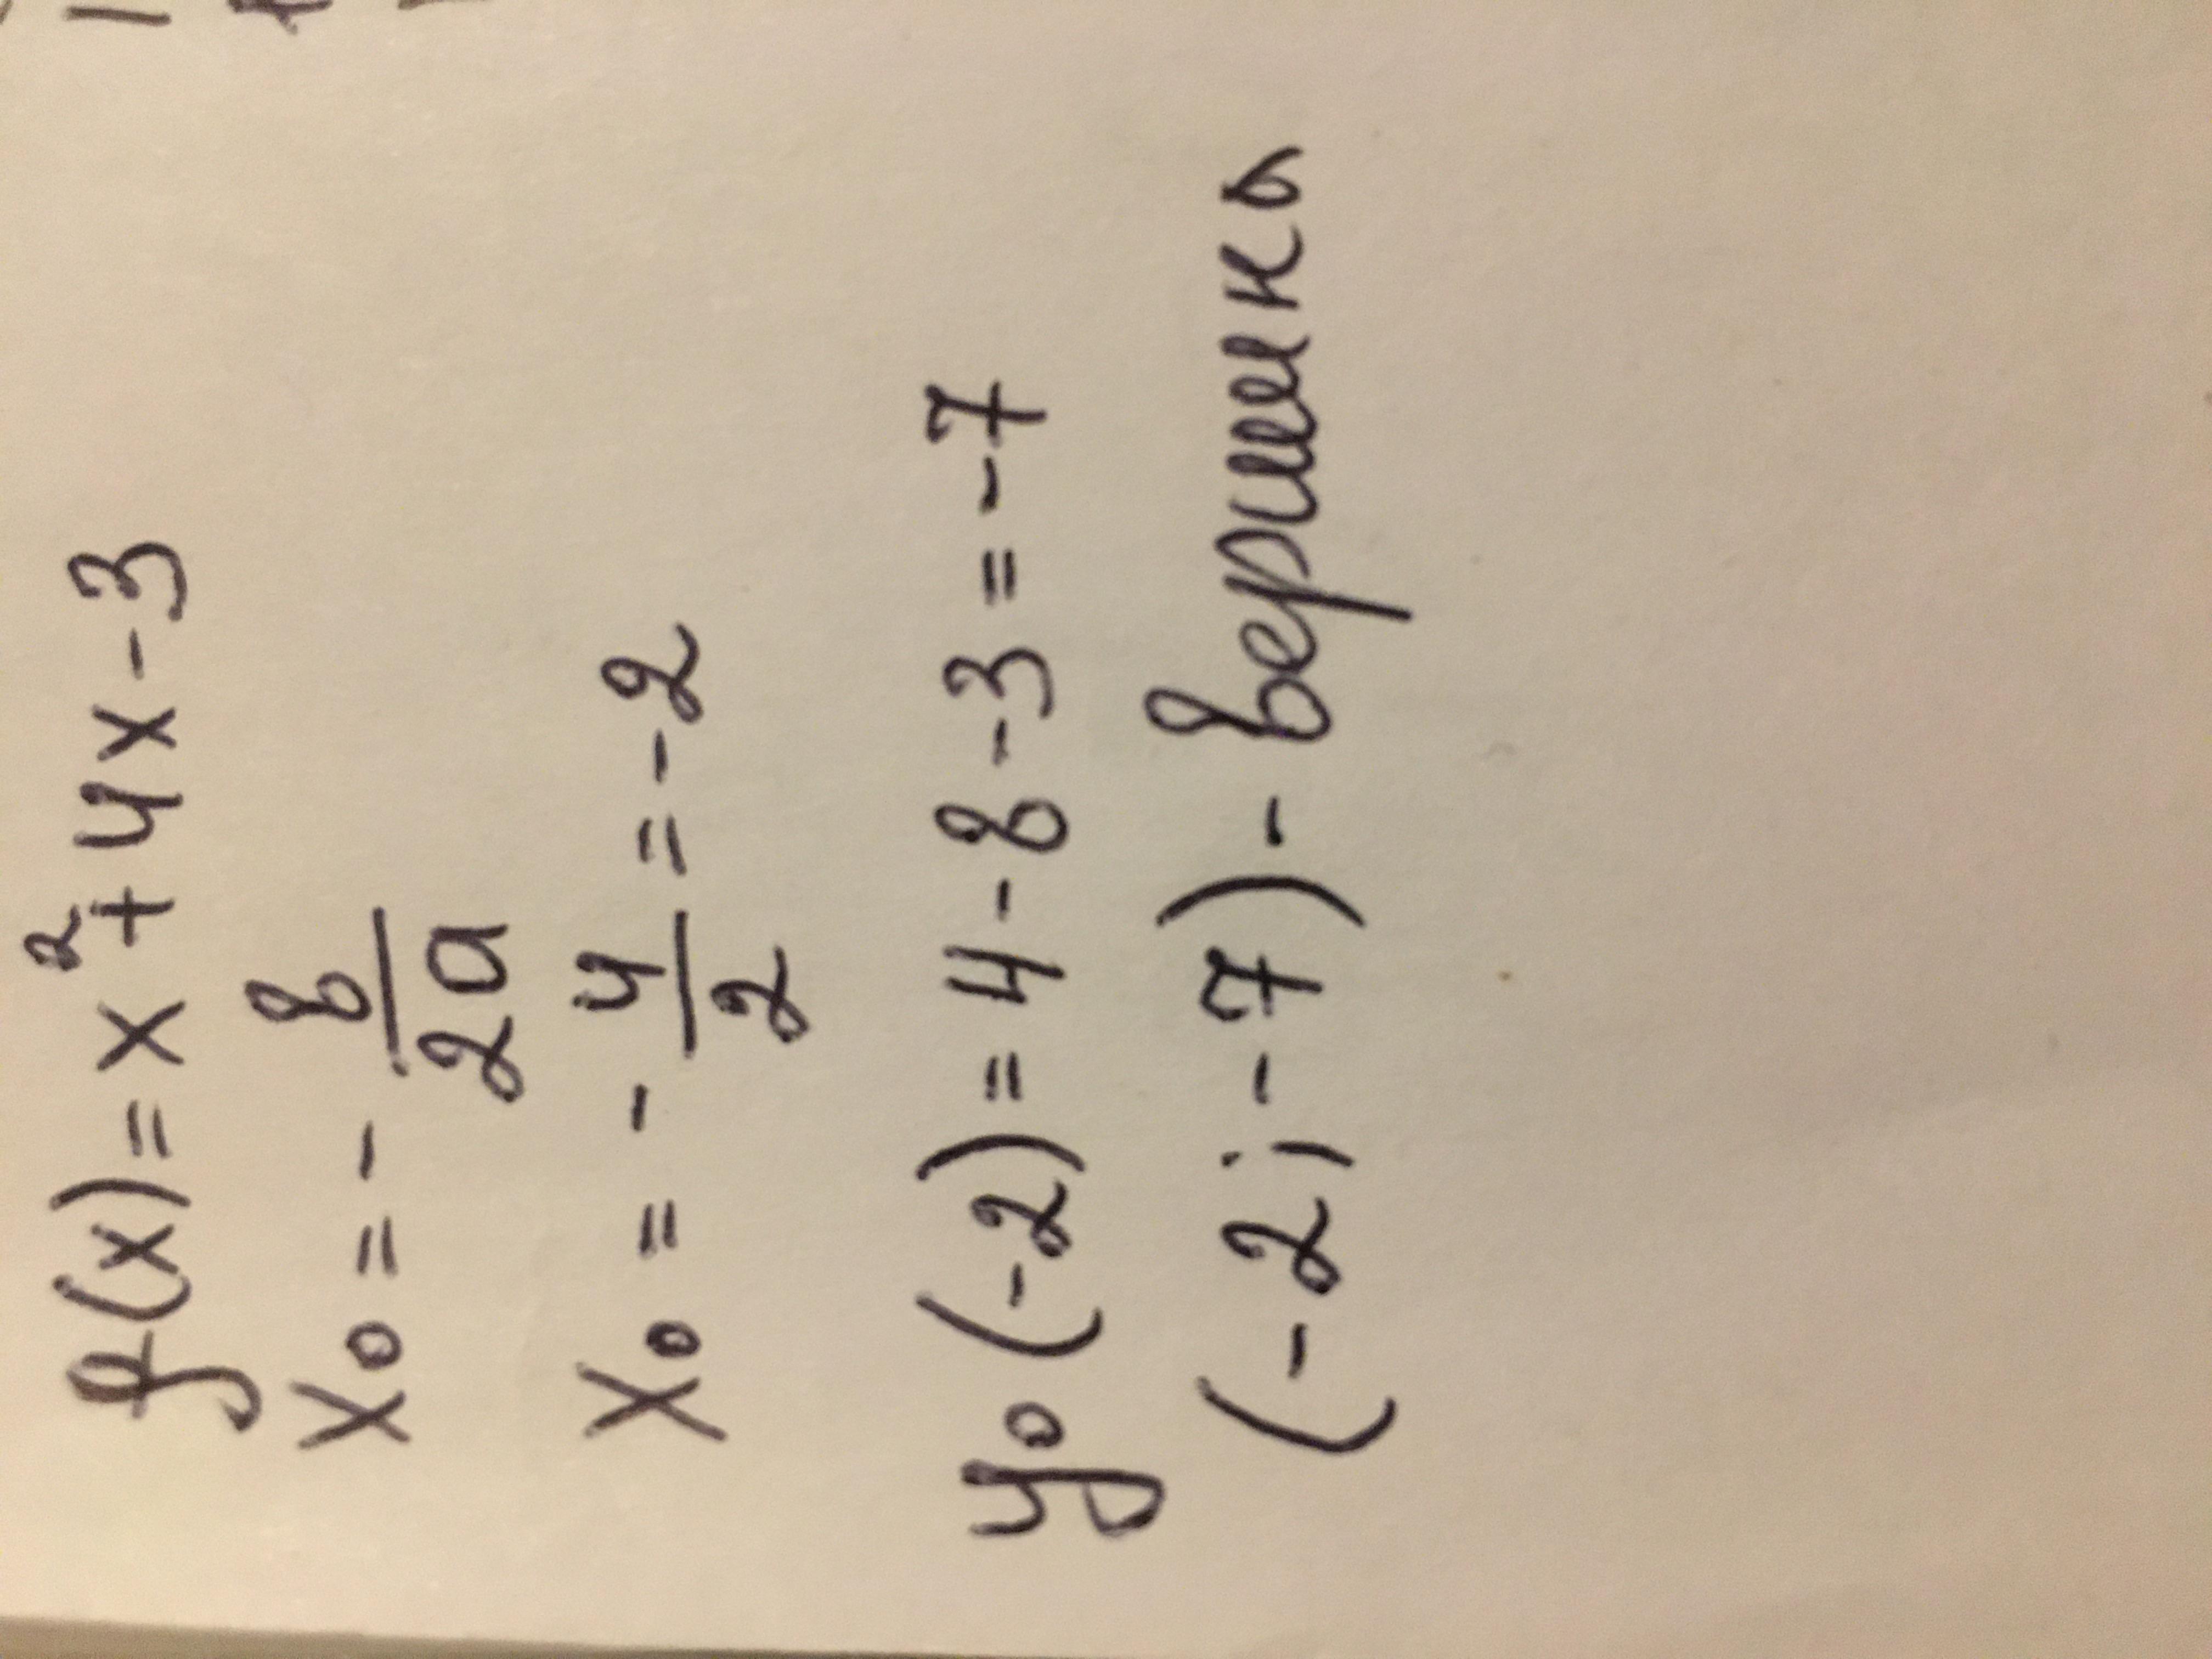 f(x) = x² + 4x - 3
x₀ = - в/2a
x₀ = - 4/2 = -2
y₀(-2) = 4 - 8 - 3 = -7
(-2; -7) - вершина